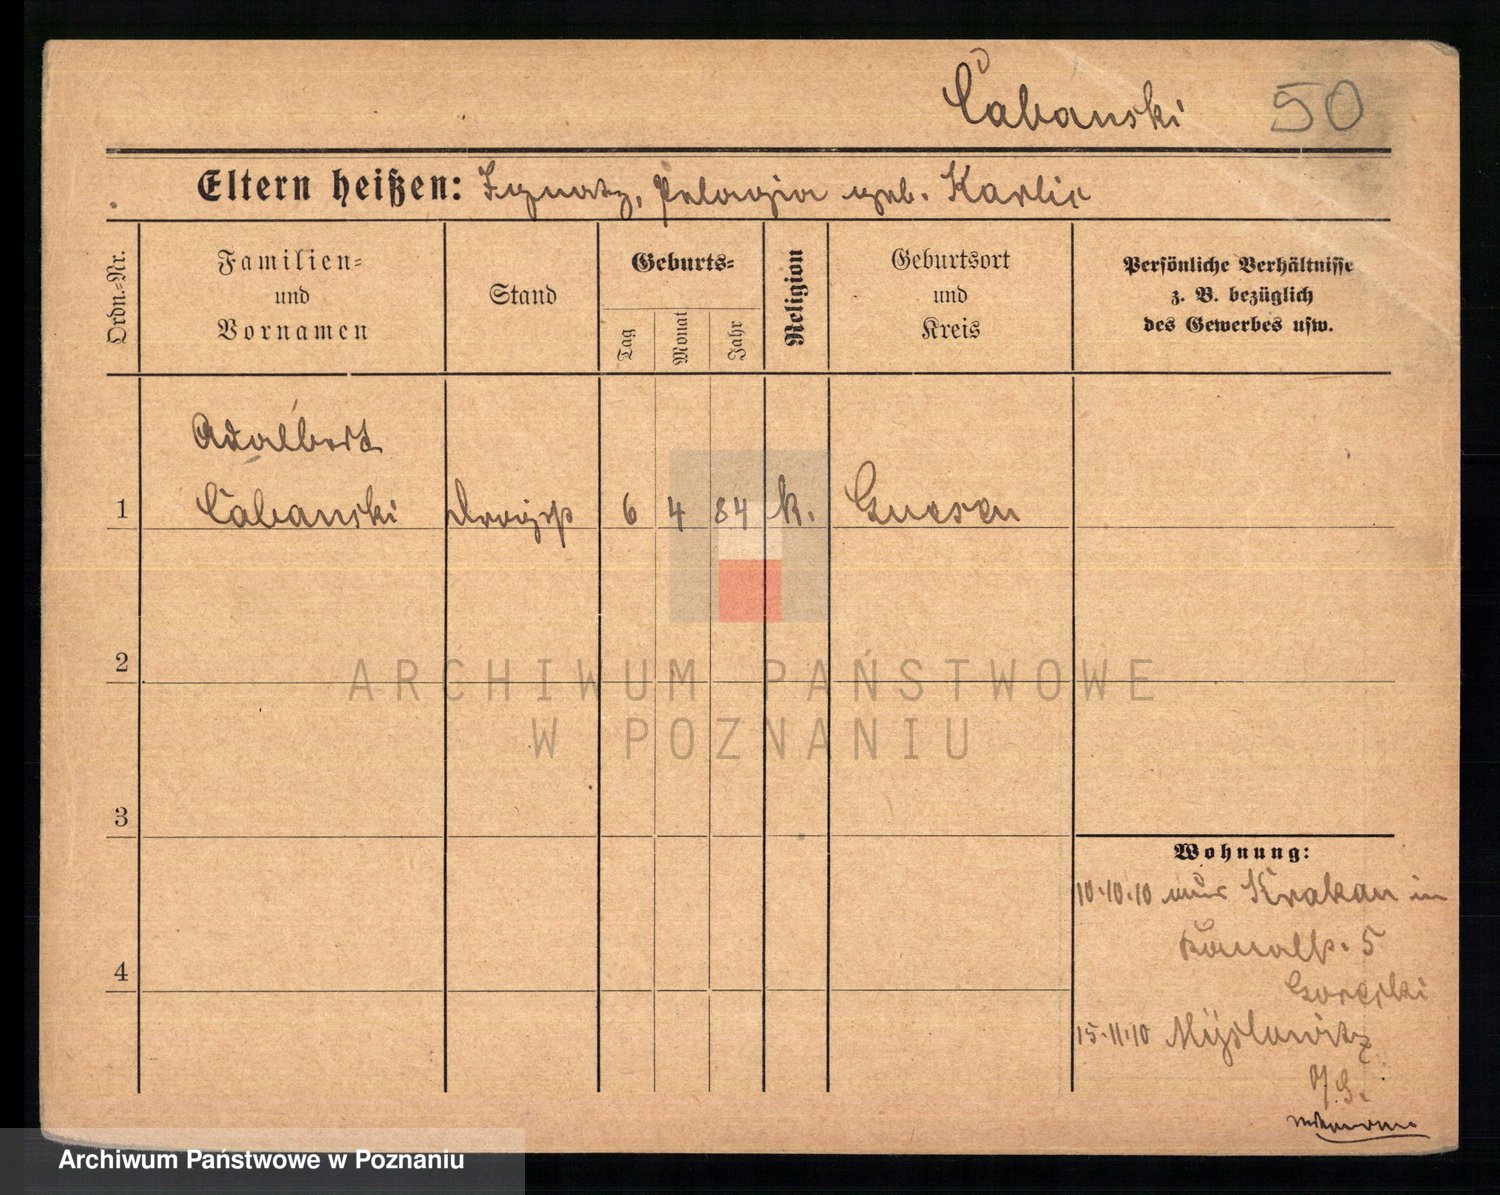 Čabanski 50
Eltern heißen: Ignatz, Pelagia geb. Karlic
Ordn.-Nr.
Familien-
und
Vornamen
Stand
Geburts-
Tag
Monat
Jahr
Religion
Geburtsort
und
Kreis
Persönliche Verhältnisse
z. B. bezüglich
des Gewerbes usw.
Adalbert
1 Čabanski 6 4 84 k. Gnesen
2
ARCHIWUM PAŃSTWOWE
W POZNANIU
3
Wohnung:
10.10.10 aus Krakau in
5
4
15.11.10 Myslowitz
Archiwum Państwowe w Poznaniu